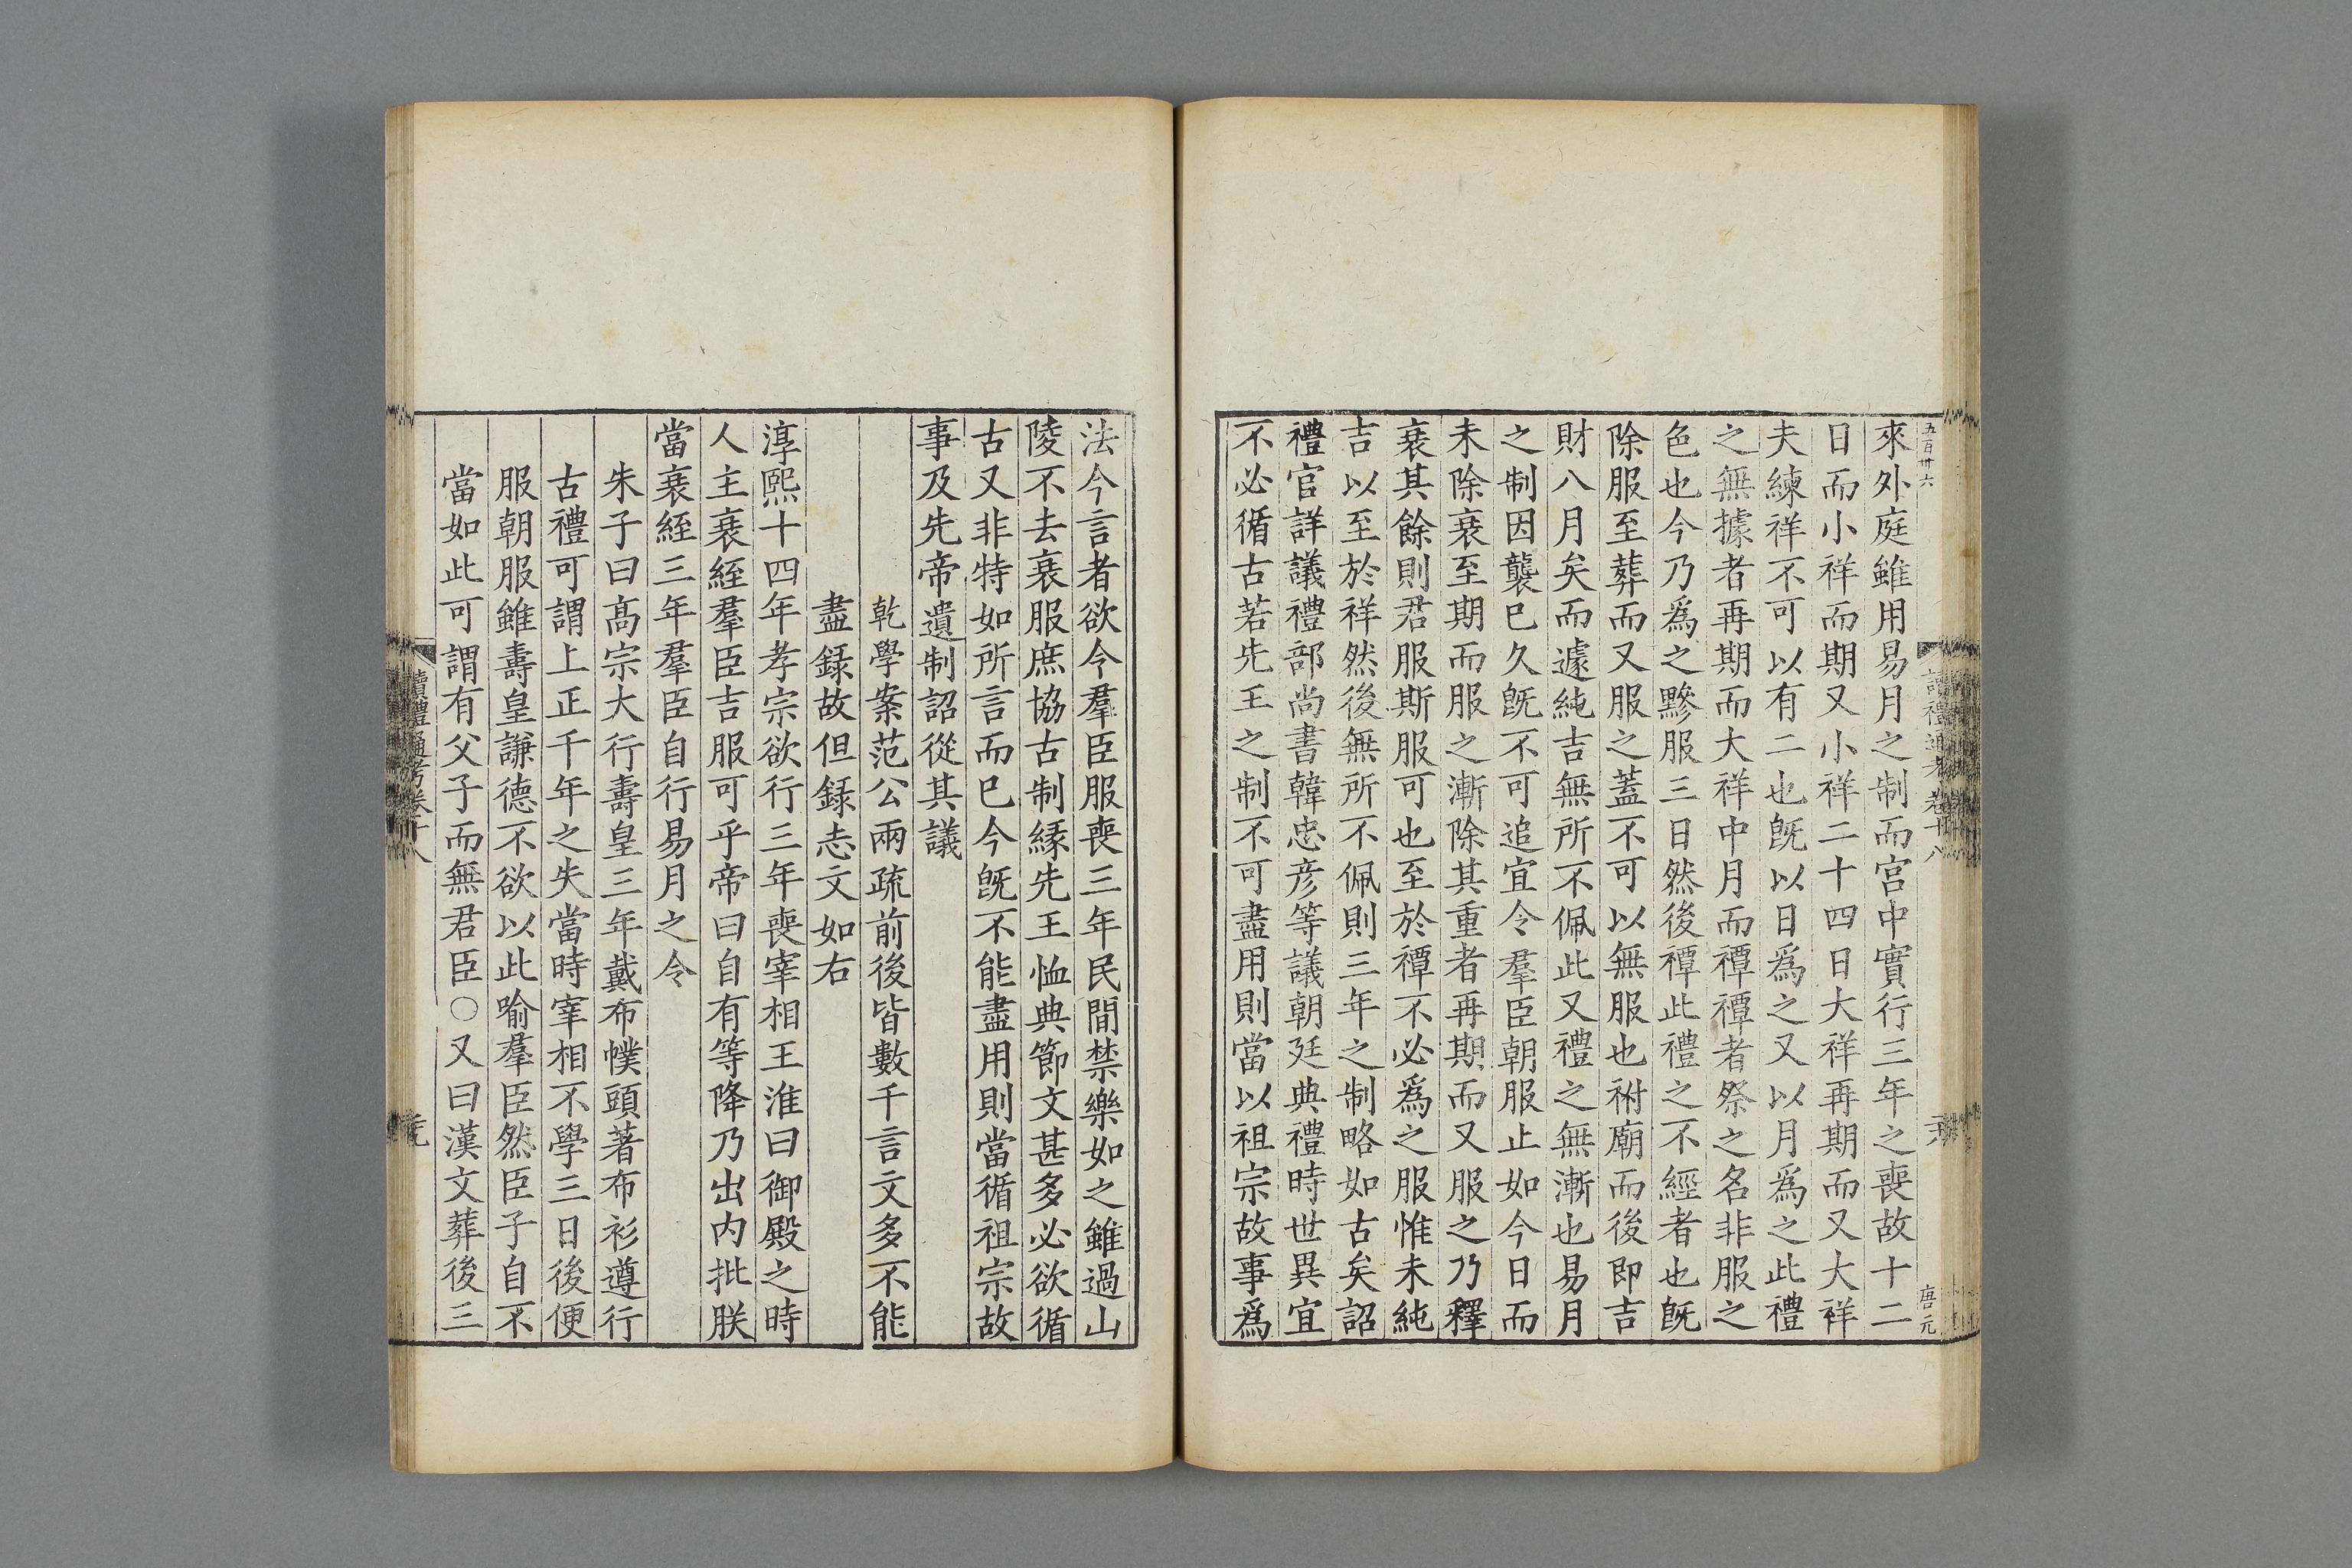 五百卅六
讀禮通考卷十八
唐元
來外庭雖用易月之制而宮中實行三年之喪故十二
日而小祥而期又小祥二十四日大祥再期而又大祥
夫練祥不可以有二也旣以日爲之又以月爲之此禮
之無據者再期而大祥中月而禫禫者祭之名非服之
色也今乃爲之黲服三日然後禫此禮之不經者也旣
除服至葬而又服之蓋不可以無服也祔廟而後即吉
財八月矣而遽純吉無所不佩此又禮之無漸也易月
之制因襲已久旣不可追宜令羣臣朝服止如今日而
未除衰至期而服之漸除其重者再期而又服之乃釋
衰其餘則君服斯服可也至於禫不必爲之服惟未純
吉以至於祥然後無所不佩則三年之制略如古矣詔
禮官詳議禮部尚書韓忠彦等議朝廷典禮時世異宜
不必循古若先王之制不可盡用則當以祖宗故事爲
法今言者欲令羣臣服喪三年民間禁樂如之雖過山
陵不去衰服庶協古制緣先王恤典節文甚多必欲循
古又非特如所言而已今旣不能盡用則當循祖宗故
事及先帝遺制詔從其議
乾學案范公兩疏前後皆數千言文多不能
盡録故但録志文如右
淳熙十四年孝宗欲行三年喪宰相王淮曰御殿之時
人主衰絰羣臣吉服可乎帝曰自有等降乃出内批朕
當衰絰三年羣臣自行易月之令
朱子曰高宗大行壽皇三年戴布幞頭著布衫遵行
古禮可謂上正千年之失當時宰相不學三日後便
服朝服雖壽皇謙德不欲以此喻羣臣然臣子自不
當如此可謂有父子而無君臣○又曰漢文葬後三
讀禮通考卷十八